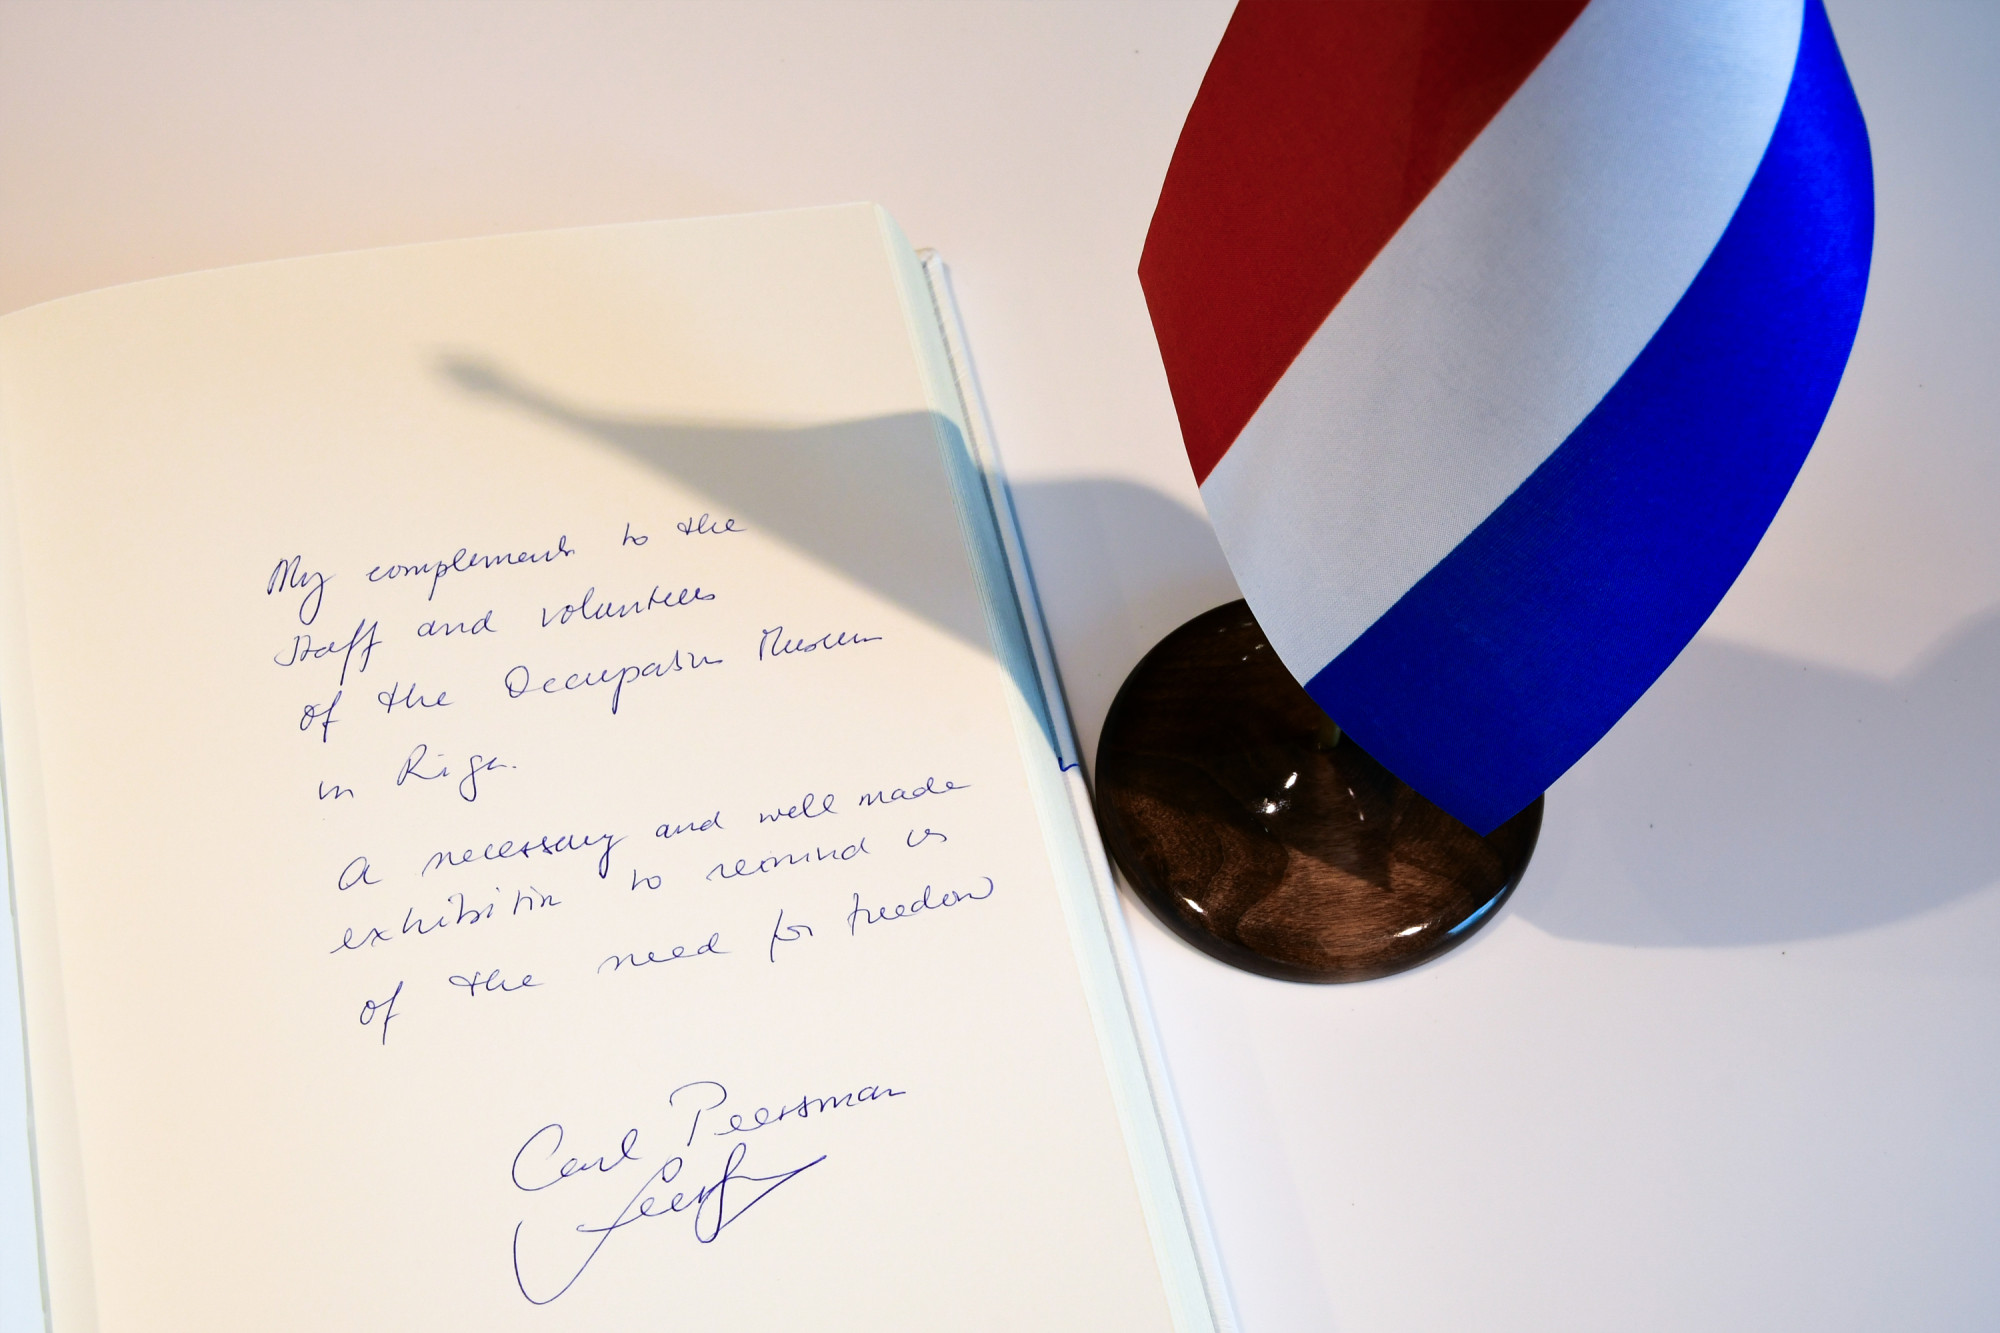 My complements to the
staff and volunteers
of the Occupation Museum
in Riga.
A necessary and well made
exhibition to remind us
of the need for freedom
Carl Peersman